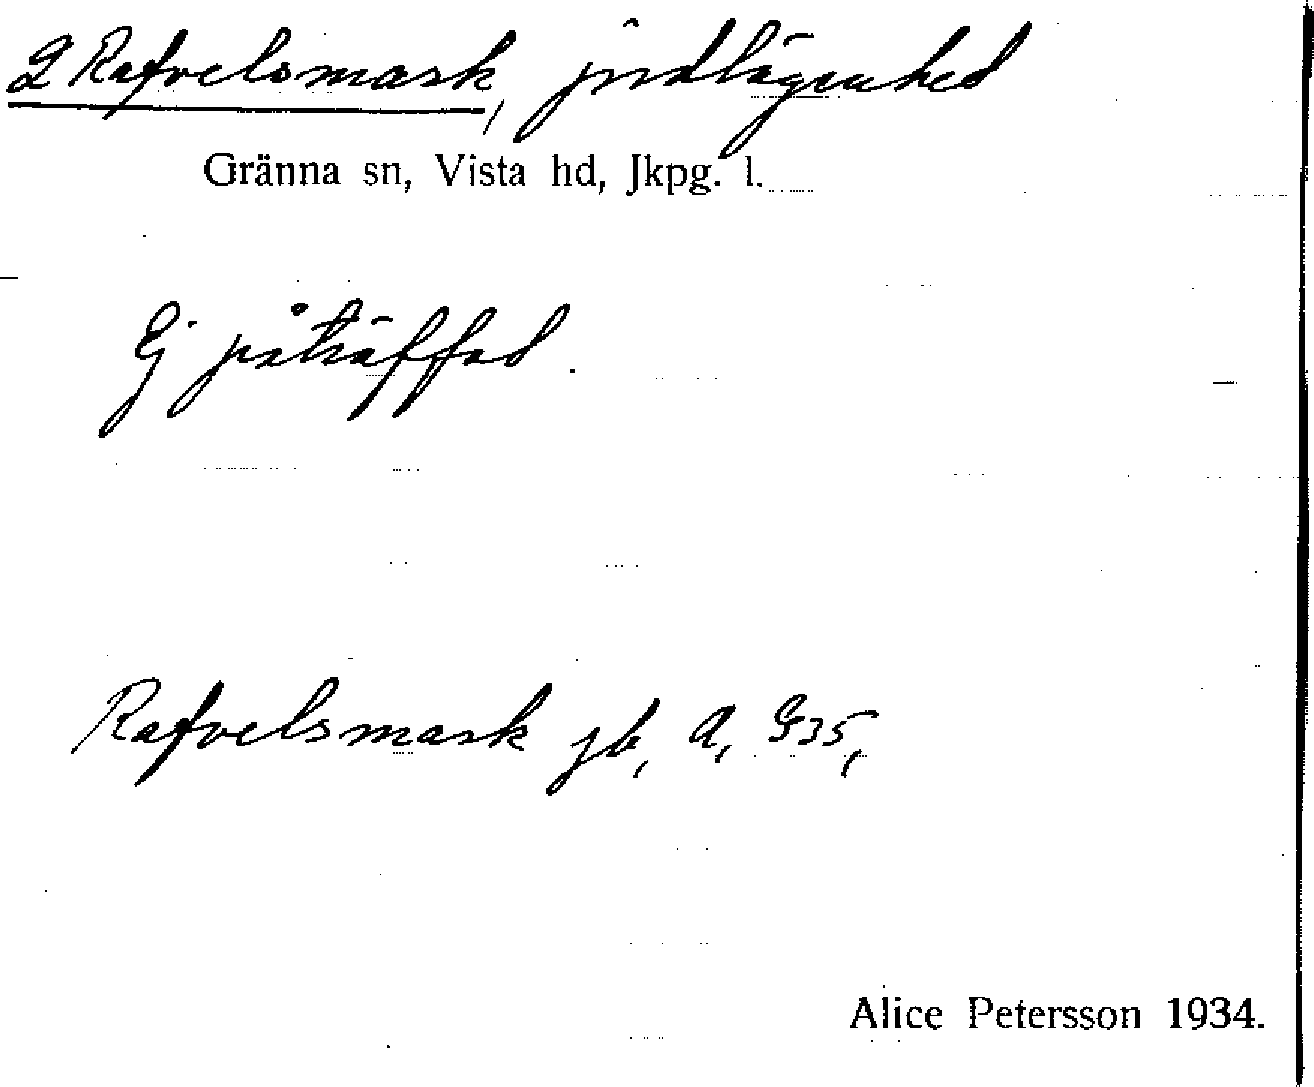 2 Rafvelsmark, jordlägenhed
Gränna sn, Vista hd, Jkpg. l.
Ej påträffad.
Rafvelsmark jb, a, G35,
Alice Petersson 1934.